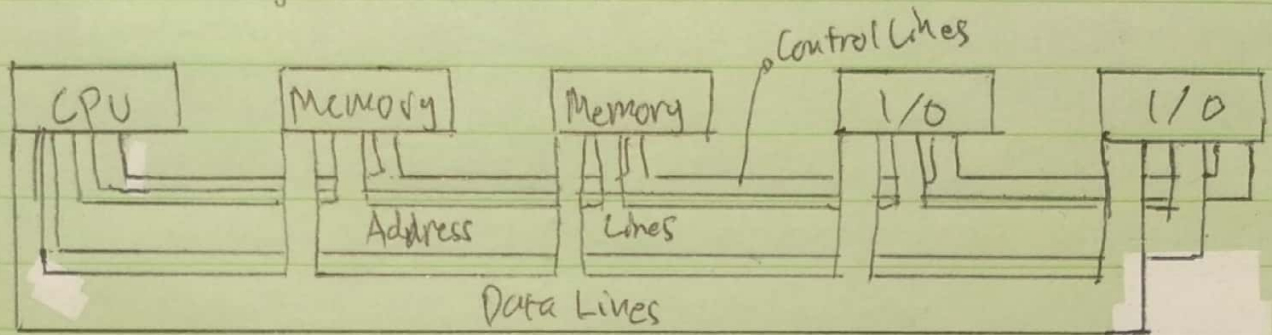 Control Lines
CPU Memory Memory I/O I/O
Address Lines
Data Lines